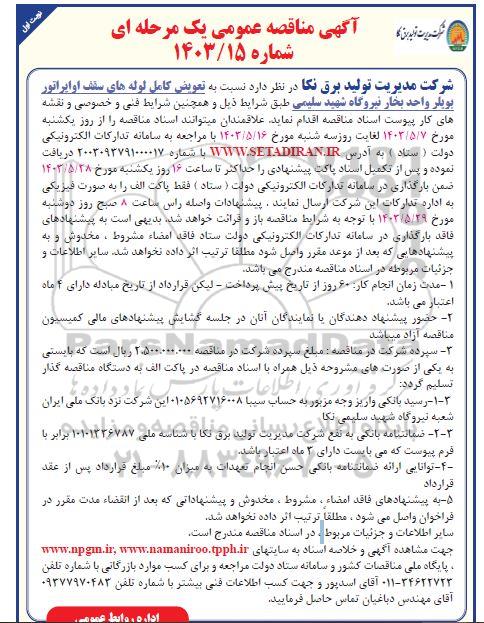 نوبت اول
شرکت مدیریت تولید برق نکا
آگهی مناقصه عمومی یک مرحله ای
شماره ۱۴۰۳/۱۵
شرکت مدیریت تولید برق نکا در نظر دارد نسبت به تعویض کامل لوله های سقف اواپراتور
بویلر واحد بخار نیروگاه شهید سلیمی طبق شرایط ذیل و همچنین شرایط فنی و خصوصی و نقشه
های کار پیوست اسناد مناقصه اقدام نماید. علاقمندان میتوانند اسناد مناقصه را از روز یکشنبه
مورخ ۱۴۰۳/۵/۷ لغایت روزسه شنبه مورخ ۱۴۰۳/۵/۱۶ با مراجعه به سامانه تدارکات الکترونیکی
دولت ( ستاد ) به آدرس WWW.SETADIRAN.IR با شماره ۲۰۰۳۰۹۳۷۹۱۰۰۰۰۱۷ دریافت
نموده و پس از تکمیل اسناد پاکت پیشنهادی را حداکثر تا ساعت ۱۶ روز یکشنبه مورخ ۱۴۰۳/۵/۲۸
ضمن بارگذاری در سامانه تدارکات الکترونیکی دولت ( ستاد ) فقط پاکت الف را به صورت فیزیکی
به اداره تدارکات این شرکت ارسال نمایند ، پیشنهادات واصله راس ساعت ۸ صبح روز دوشنبه
مورخ ۱۴۰۳/۵/۲۹ با توجه به شرایط مناقصه باز و قرائت خواهد شد. بدیهی است به پیشنهادهای
فاقد بارگذاری در سامانه تدارکات الکترونیکی دولت ستاد فاقد امضاء مشروط ، مخدوش و به
پیشنهادهایی که بعد از موعد مقرر وصول شود مطلقا ترتیب اثر داده نخواهد شد. سایر اطلاعات و
جزئیات مربوطه در اسناد مناقصه مندرج می باشد.
۱-مدت زمان انجام کار: ۶۰ روز از تاریخ پیش پرداخت - لیکن قرارداد از تاریخ مبادله دارای ۴ ماه
اعتبار می باشد.
۲- حضور پیشنهاد دهندگان یا نمایندگان آنان در جلسه گشایش پیشنهادهای مالی کمیسیون
مناقصه آزاد میباشد
۳- سپرده شرکت در مناقصه : مبلغ سپرده شرکت در مناقصه ۲.۵۰۰.۰۰۰.۰۰۰ ریال است که بایستی
به یکی از صورت های مشروحه ذیل همراه با اسناد مناقصه در پاکت الف به دستگاه مناقصه گذار
تسلیم گردد:
۳-۱-رسید بانکی واریز وجه مزبور به حساب سیبا ۰۱۰۵۶۹۲۷۱۶۰۰۸ این شرکت نزد بانک ملی ایران
شعبه نیروگاه شهید سلیمی نکا
۳-۲- ضمانتنامه بانکی به نفع شرکت مدیریت تولید برق نکا با شناسه ملی ۱۰۱۰۱۳۳۶۷۸۷ برابر با
فرم پیوست که می بایست دارای ۳ ماه اعتبار باشد.
۴-توانایی ارائه ضمانتنامه بانکی حسن انجام تعهدات به میزان ۱۰٪ مبلغ قرارداد پس از عقد
قرارداد
۵-به پیشنهادهای فاقد امضاء ، مشروط ، مخدوش و پیشنهاداتی که بعد از انقضاء مدت مقرر در
فراخوان واصل می شود ، مطلقاً ترتیب اثر داده نخواهد شد.
سایر اطلاعات و جزئیات مربوط ، در اسناد مناقصه مندرج است.
جهت مشاهده آگهی و خلاصه اسناد به سایتهای www.npgm.ir, www.namaniroo.tpph.ir
، پایگاه ملی مناقصات کشور و سامانه ستاد دولت مراجعه و برای کسب موارد بازرگانی با شماره تلفن
۰۱۱-۳۴۶۲۲۷۲۳ آقای اسدپور و جهت کسب اطلاعات فنی بیشتر با شماره تلفن ۰۹۳۷۷۹۷۰۴۸۳
آقای مهندس دباغیان تماس حاصل فرمایید.
اداره روابط عمومی
ParsNamadData
۰۲۱-۸۸۳۴۹۶۷۰-۵